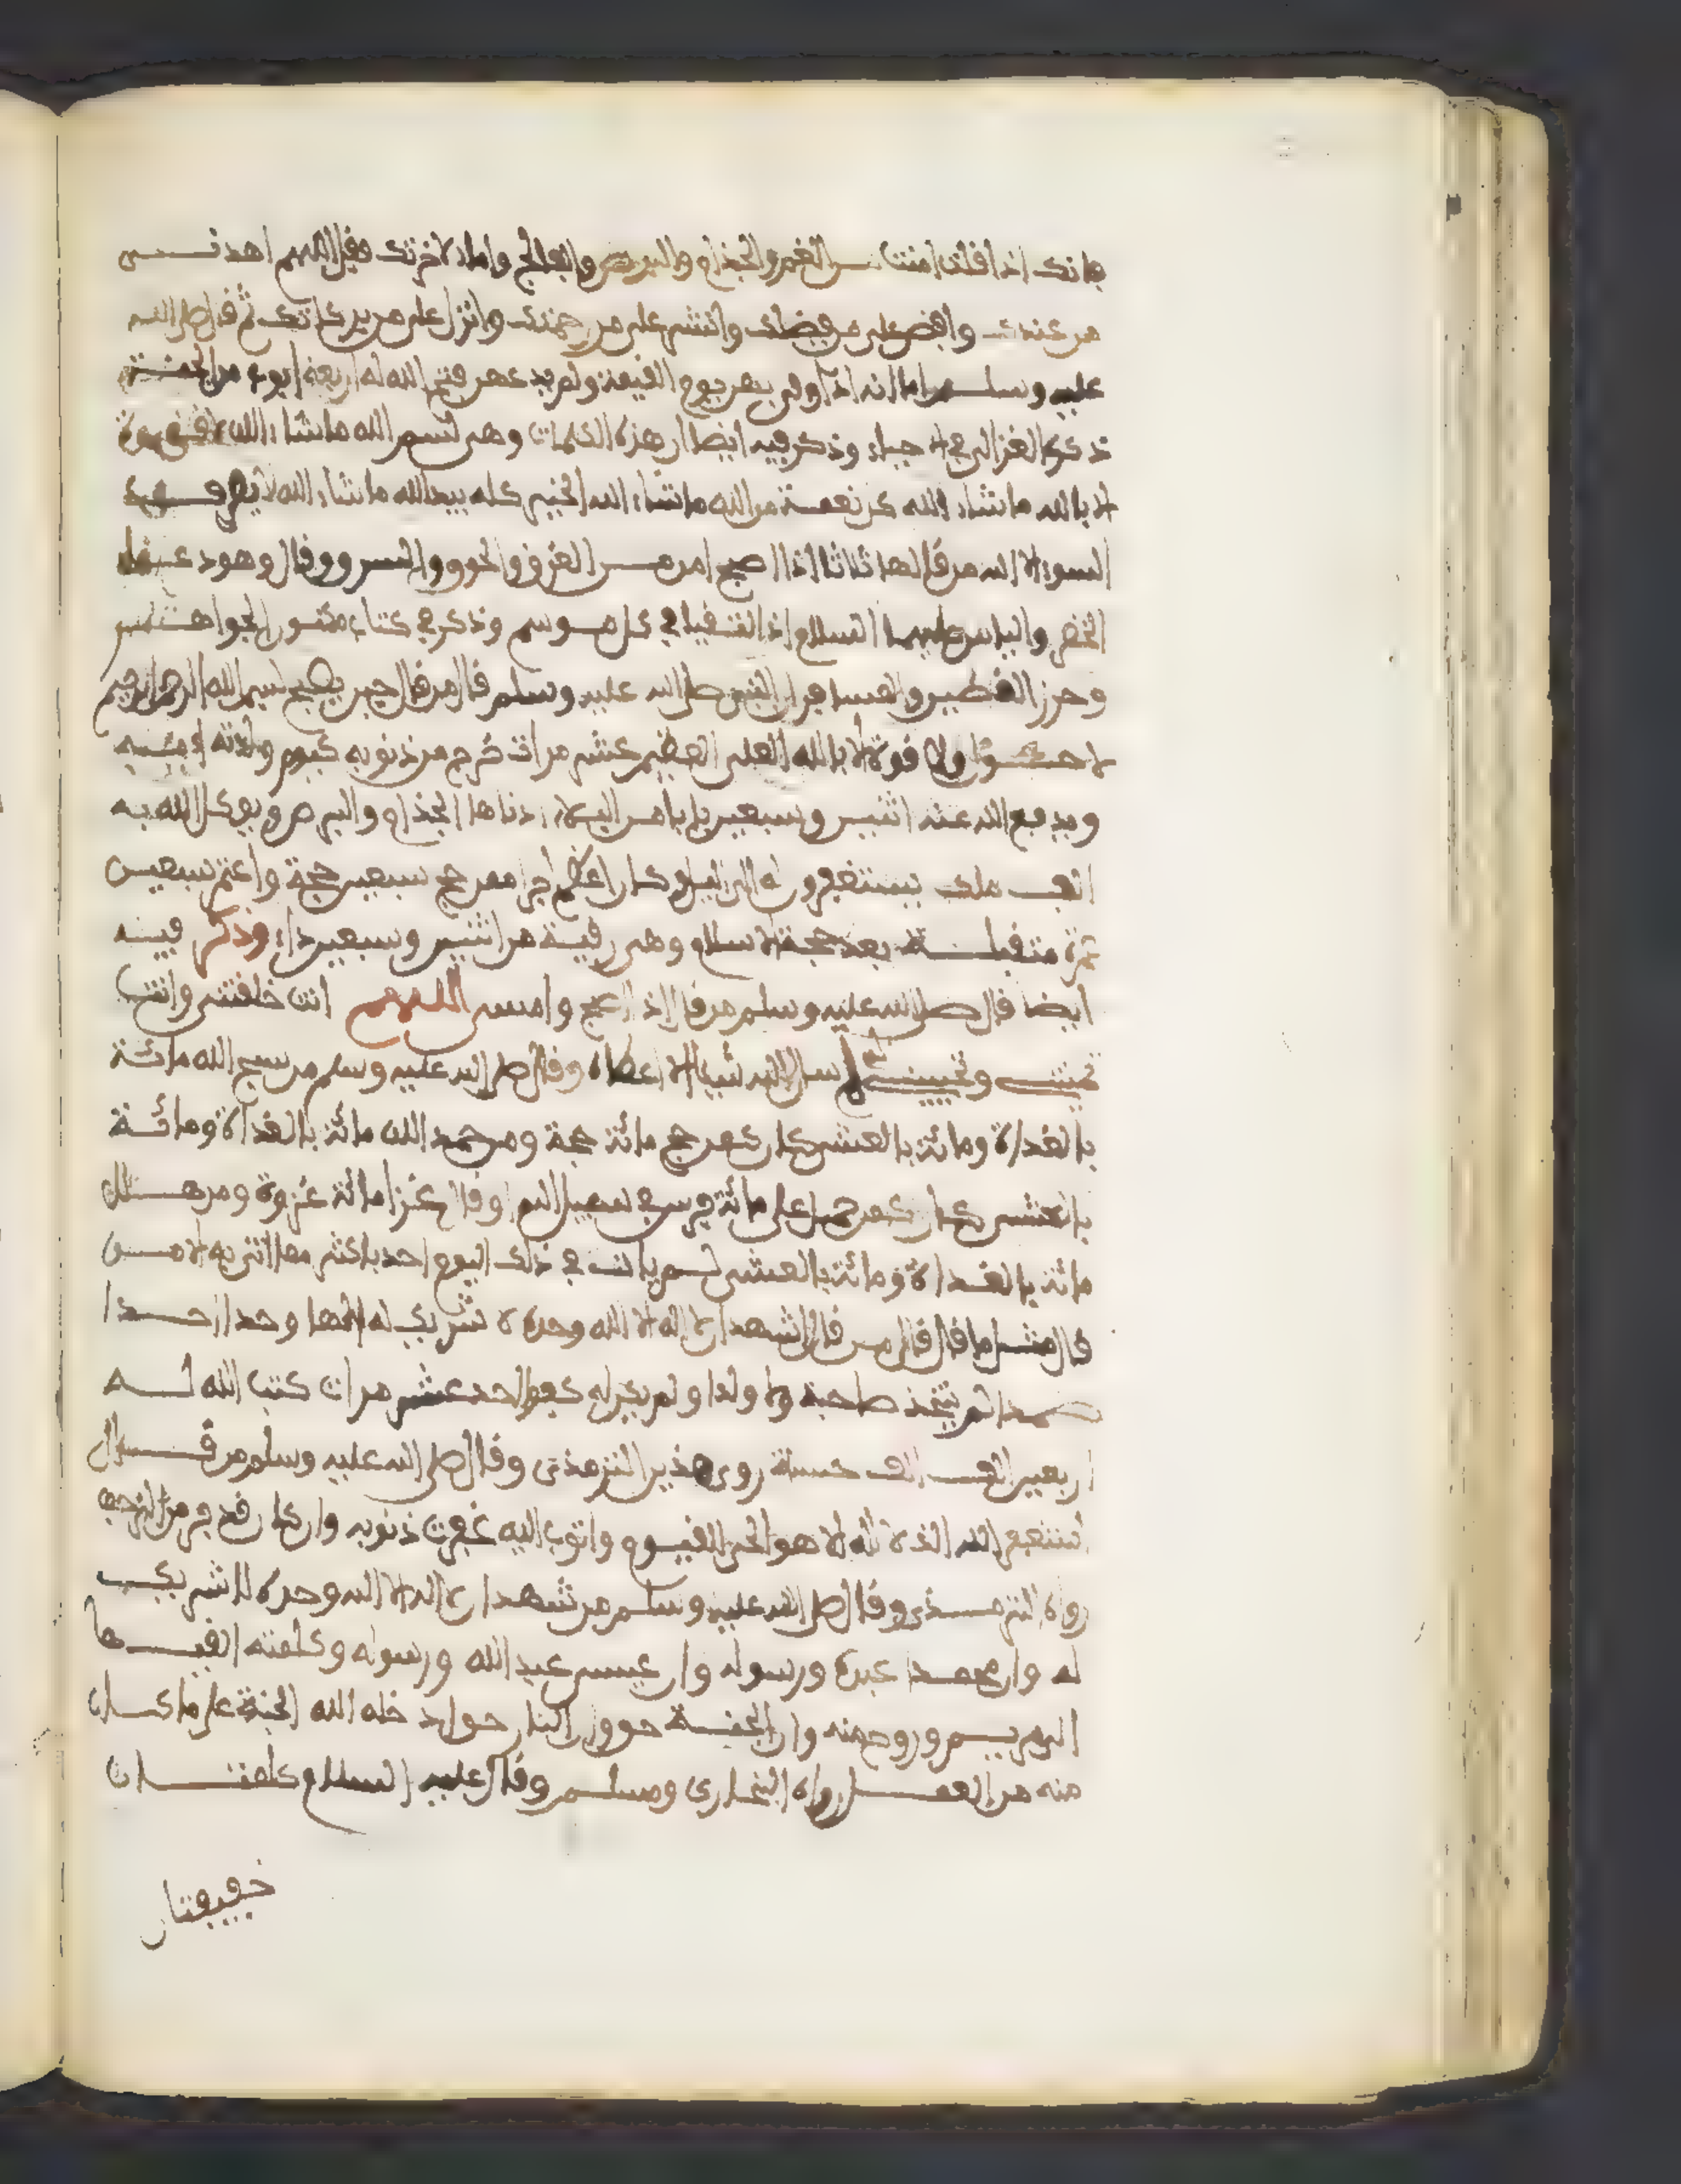 فانك اذا قلت امنت من الغم والجذام والبرص والفالج واما لاخرتك فقل اللهم اهدنــى
من عندك وافض علي من فضلك وانشر علي من رحمتك وانزل علي من بركاتك ثم قال صلى الله
عليه وسلــم اما انه اذا وفى بهن يوم القيمة ولم يدعهن فتح الله له اربعة ابواب من الجنــة
ذكره الغزالي في الاحياء وذكر فيه ايضا ان هذه الكلمات وهي بسم الله ما شاء الله لا قــوة
الا بالله ما شاء الله كل نعمــة من الله ما شاء الله الخير كله بيد الله ما شاء الله لا يصرف
السوء الا الله من قالها ثلاثا اذا اصبح امن مــن الغرق والحرق والسرق وقال وهو دعــاء
الخضر والياس عليهما السلام اذا التقيا في كل مــوسم وذكر في كتاب منثور الجواهــر
وحرز المقيم والمسافر ان النبي صلى الله عليه وسلم قال من قال حين يصبح بسم الله الرحمن الرحيم
لا حــول ولا قوة الا بالله العلي العظيم عشر مرات خرج من ذنوبه كيوم ولدته امــه
ويدفع الله عنه اثنيــن وسبعين بابا مــن البلاء ادناها الجذام والبرص ويوكل الله به
الف ملك يستغفرون له الى الليل وكان اعظم اجرا ممن حج سبعين حجة واعتمر سبعيــن
عمرة متقبلــة بعد حجة الاسلام وهي رقيــة من اثنين وسبعين داء وذكر فيــه
ايضا قال صلى الله عليه وسلم من قال اذا اصبح وامسى اللــهم انت خلقتني وانت
تميتنــي وتحيينــي لم يسال الله شيئا الا اعطاه وقال صلى الله عليه وسلم من سبح الله مائــة
بالغداة ومائة بالعشي كان كمن حج مائة حجة ومن حمد الله مائة بالغداة ومائــة
بالعشي كــان كمن حمل على مائة فرس في سبيل الله او قال غزا مائة غزوة ومن هــلل
مائة بالغــداة ومائة بالعشي لــم يات في ذلك اليوم احد باكثر مما اتى به الا مــن
قال مثــل ما قال قال مــن قال اشهد ان لا اله الا الله وحده لا شريك له الها واحدا احــدا
صــمدا لم يتخذ صاحبة ولا ولدا ولم يكن له كفؤا احد عشر مرات كتب الله لــه
اربعين الف الف حسنة روى هذين الترمذي وقال صلى الله عليه وسلم من قــال
استغفر الله الذي لا اله الا هو الحي القيــوم واتوب اليه غفرت ذنوبه وان كان قد فر من الزحف
رواه الترمــذي وقال صلى الله عليه وسلــم من شهد ان لا اله الا الله وحده لا شريك
له وان محمــدا عبده ورسوله وان عيسى عبد الله ورسوله وكلمته القيــها
الى مريــم وروح منه وان الجنــة حق وان النار حق ادخله الله الجنة على ما كــان
منه من العمــل رواه البخاري ومسلــم وقال عليه السلام كلمتــان
خفيفتان